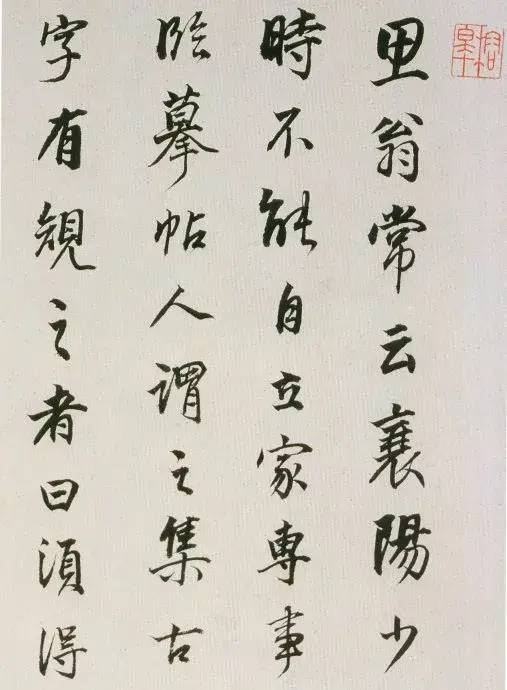 思翁常云襄陽少
時不能自立家專事
臨摹帖人謂之集古
字有規之者曰須得